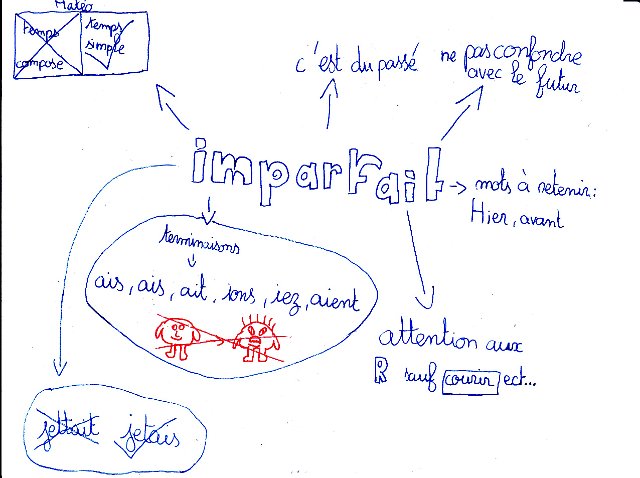 Matéo
temps
composé
temps
simple
c'est du passé
ne pas confondre
avec le futur
imparfait
mots à retenir:
Hier, avant
terminaisons
ais, ais, ait, ions, iez, aient
attention aux
R sauf courir ect...
jettait jetais